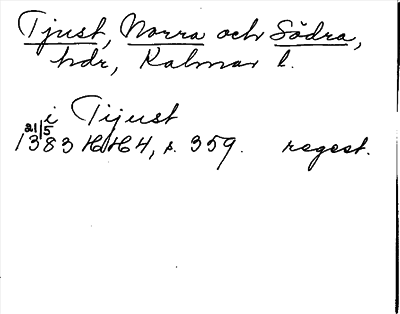 Tjust, Norra och Södra,
hdr, Kalmar l.
i Tijust
21/5
1383 HH 4, s. 359. regest.